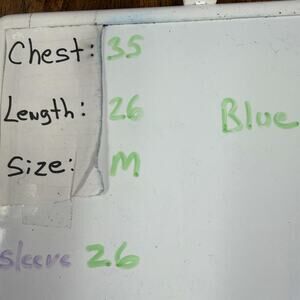 Chest: 35
Length: 26
Blue
Size: M
sleeve 26